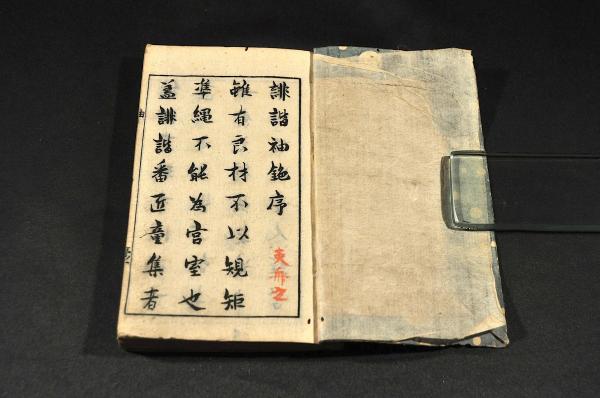 誹諧袖鉋序
雖有良材不以規矩
準繩不能為宮室也
蓋誹諧番匠童集者